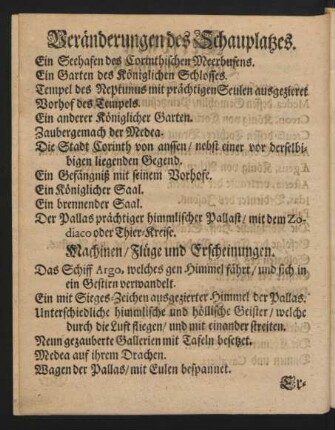 Veränderungen des Schauplatzes.
Ein Seehafen des Corinthischen Meerbusens.
Ein Garten des Königlichen Schlosses.
Tempel des Neptunus mit prächtigen Seulen ausgezieret
Vorhof des Tempels.
Ein anderer Königlicher Garten.
Zaubergemach der Medea.
Die Stadt Corinth von aussen / nebst einer vor derselbi-
bigen liegenden Gegend.
Ein Gefängniß mit seinem Vorhofe.
Ein Königlicher Saal.
Ein brennender Saal.
Der Pallas prächtiger himmlischer Pallast / mit dem Zo-
diaco oder Thier-Kreise.
Machinen / Flüge und Erscheinungen.
Das Schiff Argo, welches gen Himmel fährt / und sich in
ein Gestirn verwandelt.
Ein mit Sieges-Zeichen ausgezierter Himmel der Pallas.
Unterschiedliche himmlische und höllische Geister / welche
durch die Luft fliegen / und mit einander streiten.
Neun gezauberte Gallerien mit Tafeln besetzet.
Medea auf ihrem Drachen.
Wagen der Pallas / mit Eulen bespannet.
Er-